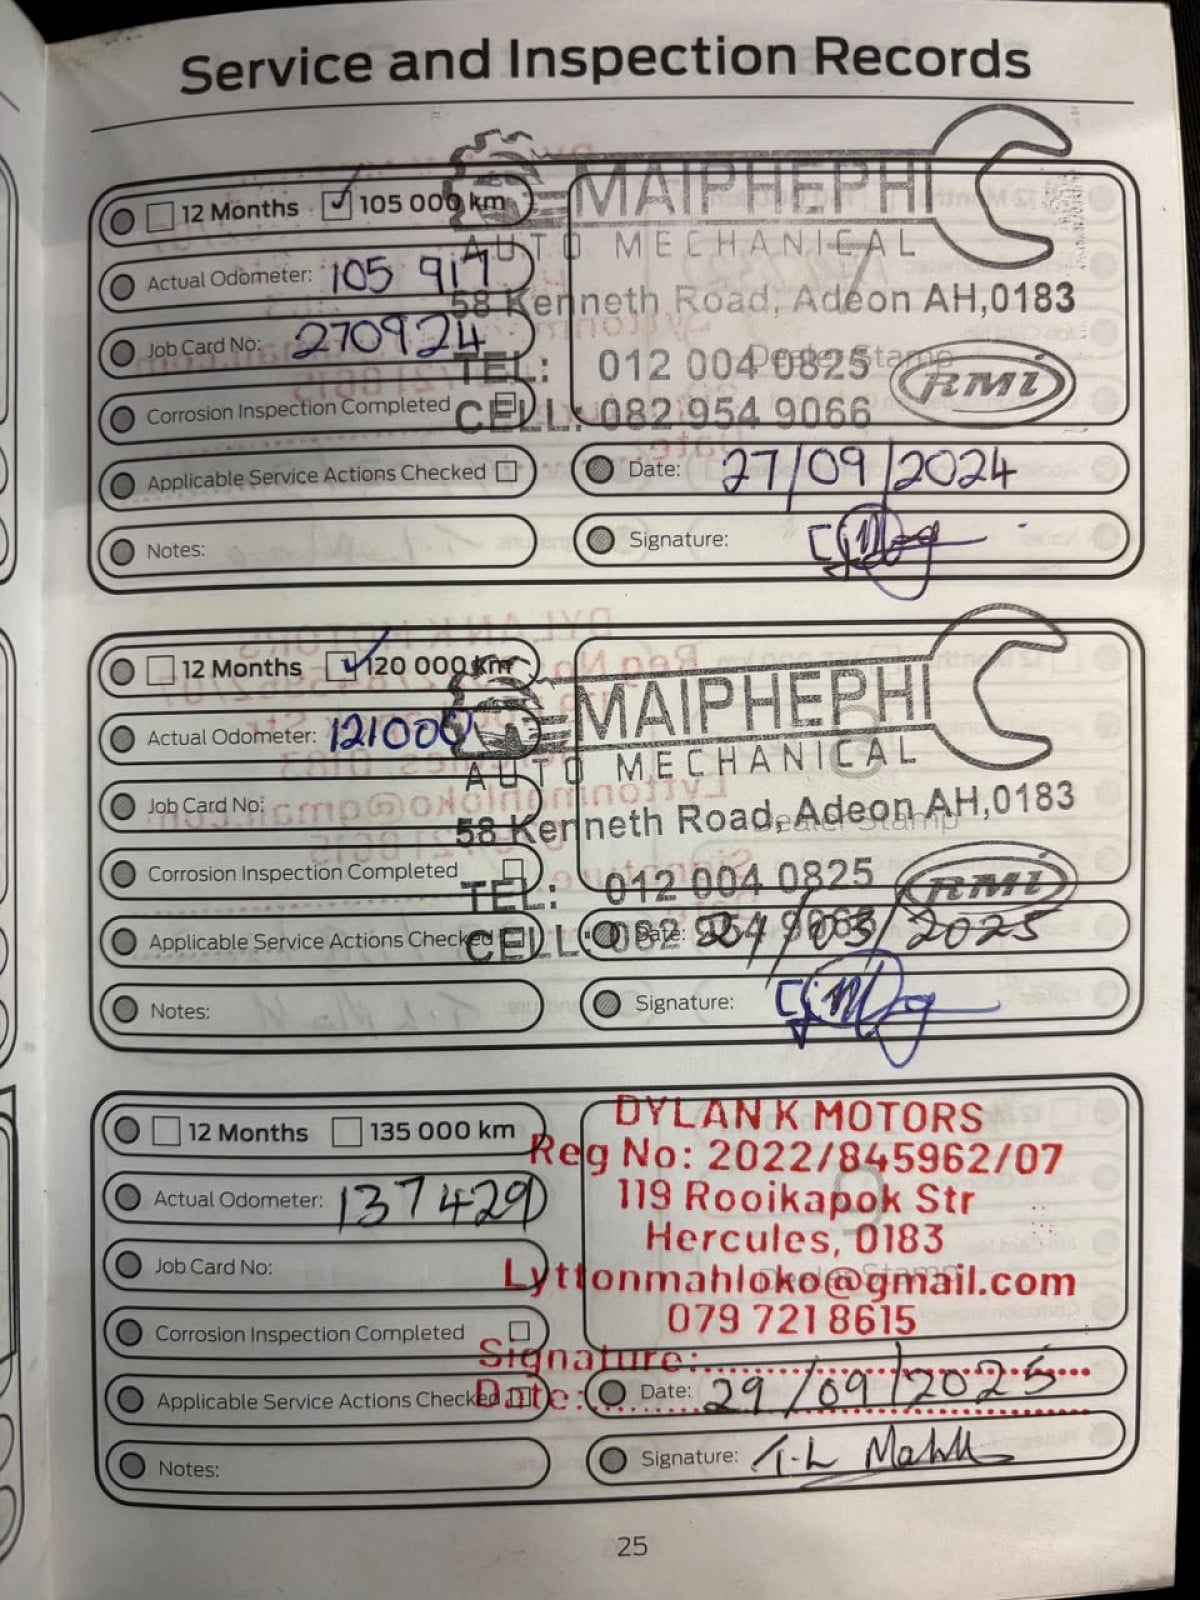 Service and Inspection Records
12 Months 105 000 km
MAIPHEPHI
AUTO MECHANICAL
Actual Odometer: 105 917
58 Kenneth Road, Adeon AH,0183
Job Card No: 270924
Dealer Stamp
TEL: 012 004 0825
RMi
Corrosion Inspection Completed
CELL: 082 954 9066
Applicable Service Actions Checked
Date: 27/09/2024
Notes:
Signature:
12 Months 120 000 km
MAIPHEPHI
AUTO MECHANICAL
Actual Odometer: 121000
58 Kenneth Road, Adeon AH,0183
Job Card No:
Dealer Stamp
Corrosion Inspection Completed
TEL: 012 004 0825
RMi
Applicable Service Actions Checked
CELL: 082 954 9066
Date: /03/2025
Notes:
Signature:
12 Months 135 000 km
DYLAN K MOTORS
Reg No: 2022/845962/07
Actual Odometer: 137429
119 Rooikapok Str
Hercules, 0183
Job Card No:
Dealer Stamp
Lyttonmahloko@gmail.com
079 721 8615
Corrosion Inspection Completed
Signature:
Applicable Service Actions Checked
Date:
Date: 29/09/2025
Notes:
Signature: T-L
25